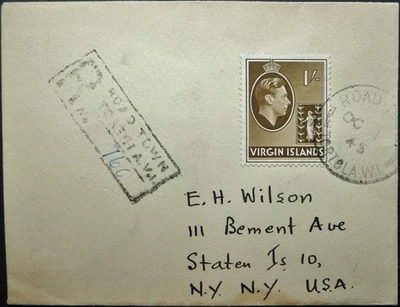 R
ROAD TOWN
TORTOLA.V.I.
No. 766
1/-
VIRGIN ISLANDS
ROAD
OC
45
TORTOLA.W.I.
E. H. Wilson
111 Bement Ave
Staten Is 10,
N.Y. N.Y. U.S.A.